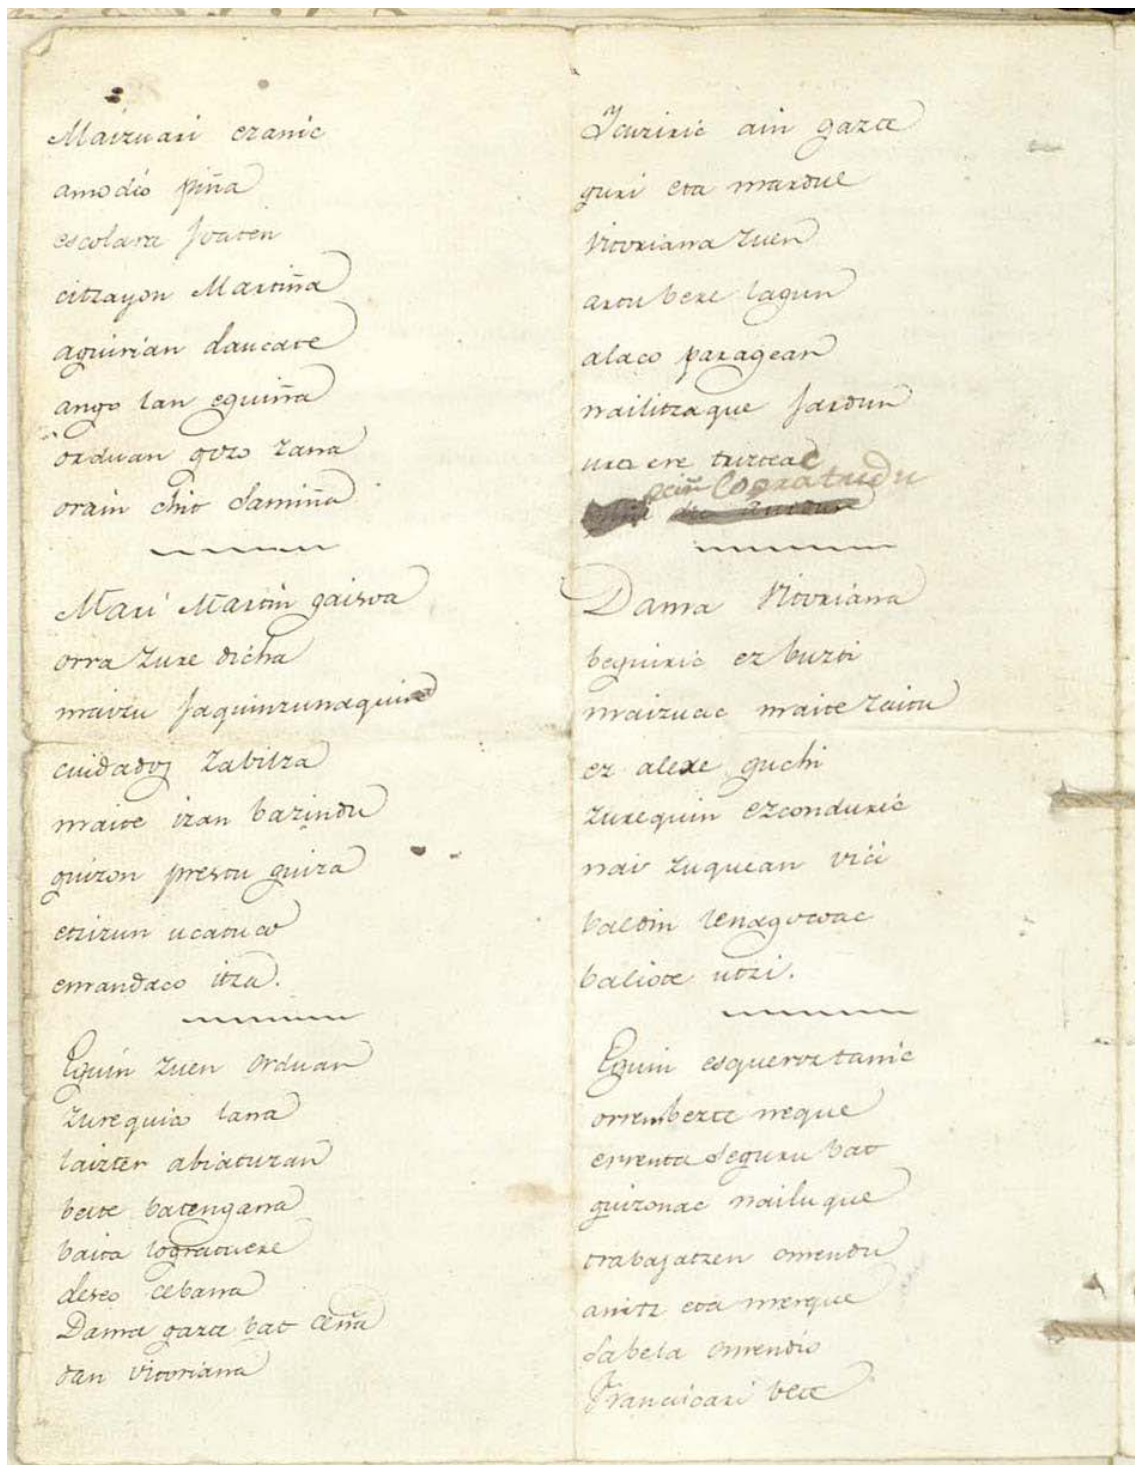 Maizuari ezanic
amodio piña
escolara joaten
citzayon Martiña
aguirian daucate
ango lan eguiña
orduan gozo zana
orain chit samiña
Mari Martin gaisoa
orra zure dicha
maizu jaquinzunaquin
cuidadoz zabilza
maite izan bazindu
guizon prestu guiza
etzizun ucatuco
emandaco itza.
Eguin zuen orduan
zurequin lana
laizter abiatuzan
beste batengana
baita logratu ere
deseo cebana
Dama gazte bat ceña
dan vitoriana
Icuziric ain gazte
guri eta mardul
Vitoriana zuen
artu bere lagun
alaco paragean
nailitzaque jardun
urtz ere tristeac
ecin Logratudu
Dama Vitoriana
beguiric ez butzi
maizuac maite zaitu
ez alere guchi
zurequin ezconduric
nai zuquean vici
baldin lenagocoac
baliote utzi.
Eguin esqueroztanic
orrenberte neque
errenta seguru bat
guizonac nailuque
trabajatzen omendu
anitz eta merque
sabela omendio
Franciscari bete